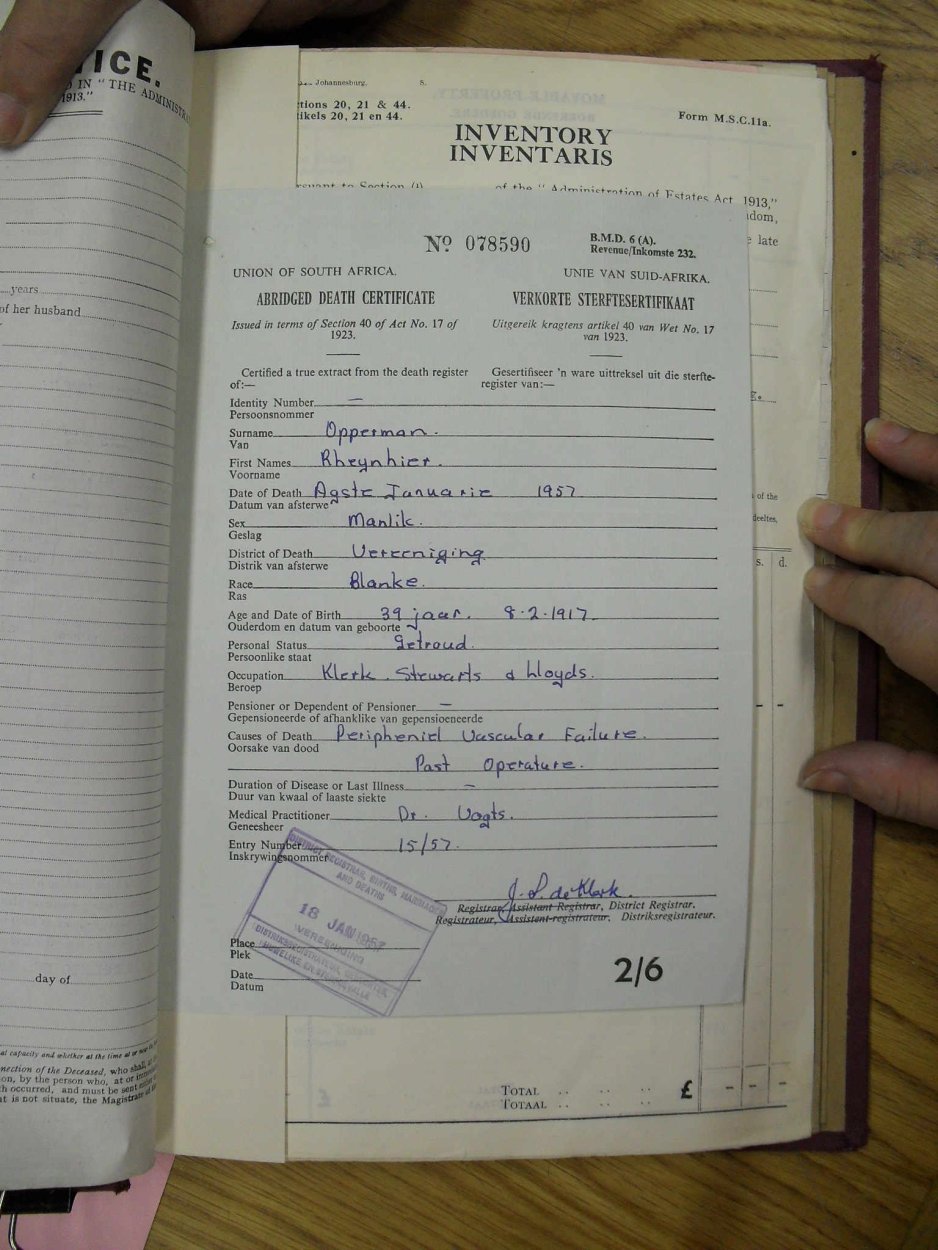 TICE.
D IN "THE ADMINISTR
1913."
years
of her husband
day of
al capacity and whether at the time at or
nnection of the Deceased, who shall,
on, by the person who, at or
h occurred, and must be sent
t is not situate, the Magistrate
Johannesburg. S.
tions 20, 21 & 44.
ikels 20, 21 en 44.
Form M.S.C.11a.
INVENTORY
INVENTARIS
rsuant to Section (1) of the "Administration of Estates Act, 1913,"
dom,
e late
of the
deeltes,
s. d.
Nº 078590
B.M.D. 6 (A).
Revenue/Inkomste 232.
UNION OF SOUTH AFRICA. UNIE VAN SUID-AFRIKA.
ABRIDGED DEATH CERTIFICATE VERKORTE STERFTESERTIFIKAAT
Issued in terms of Section 40 of Act No. 17 of
1923.
Uitgereik kragtens artikel 40 van Wet No. 17
van 1923.
Certified a true extract from the death register
of:—
Gesertifiseer 'n ware uittreksel uit die sterfte-
register van:—
Identity Number —
Persoonsnommer
Surname Opperman.
Van
First Names Rheynhier.
Voorname
Date of Death Agste Januarie 1957
Datum van afsterwe
Sex Manlik.
Geslag
District of Death Vereeniging
Distrik van afsterwe
Race Blanke.
Ras
Age and Date of Birth 39 jaar. 8-2-1917
Ouderdom en datum van geboorte
Personal Status Getroud.
Persoonlike staat
Occupation Klerk. Stewarts & Lloyds.
Beroep
Pensioner or Dependent of Pensioner —
Gepensioneerde of afhanklike van gepensioenceerde
Causes of Death Peripheniel Vascular Failure.
Oorsake van dood
Past Operature.
Duration of Disease or Last Illness —
Duur van kwaal of laaste siekte
Medical Practitioner Dr. Vogts.
Geneesheer
Entry Number 15/57.
Inskrywingsnommer
DISTRICT REGISTRAR, BIRTHS, MARRIAGES
AND DEATHS
18 JAN 1957
VEREENIGING
J. S. de Klerk
Registrar, Assistant Registrar, District Registrar.
Registrateur, Assistent-registrateur, Distriksregistrateur.
Place
Plek
Date
Datum
2/6
TOTAL £ - - -
TOTAAL